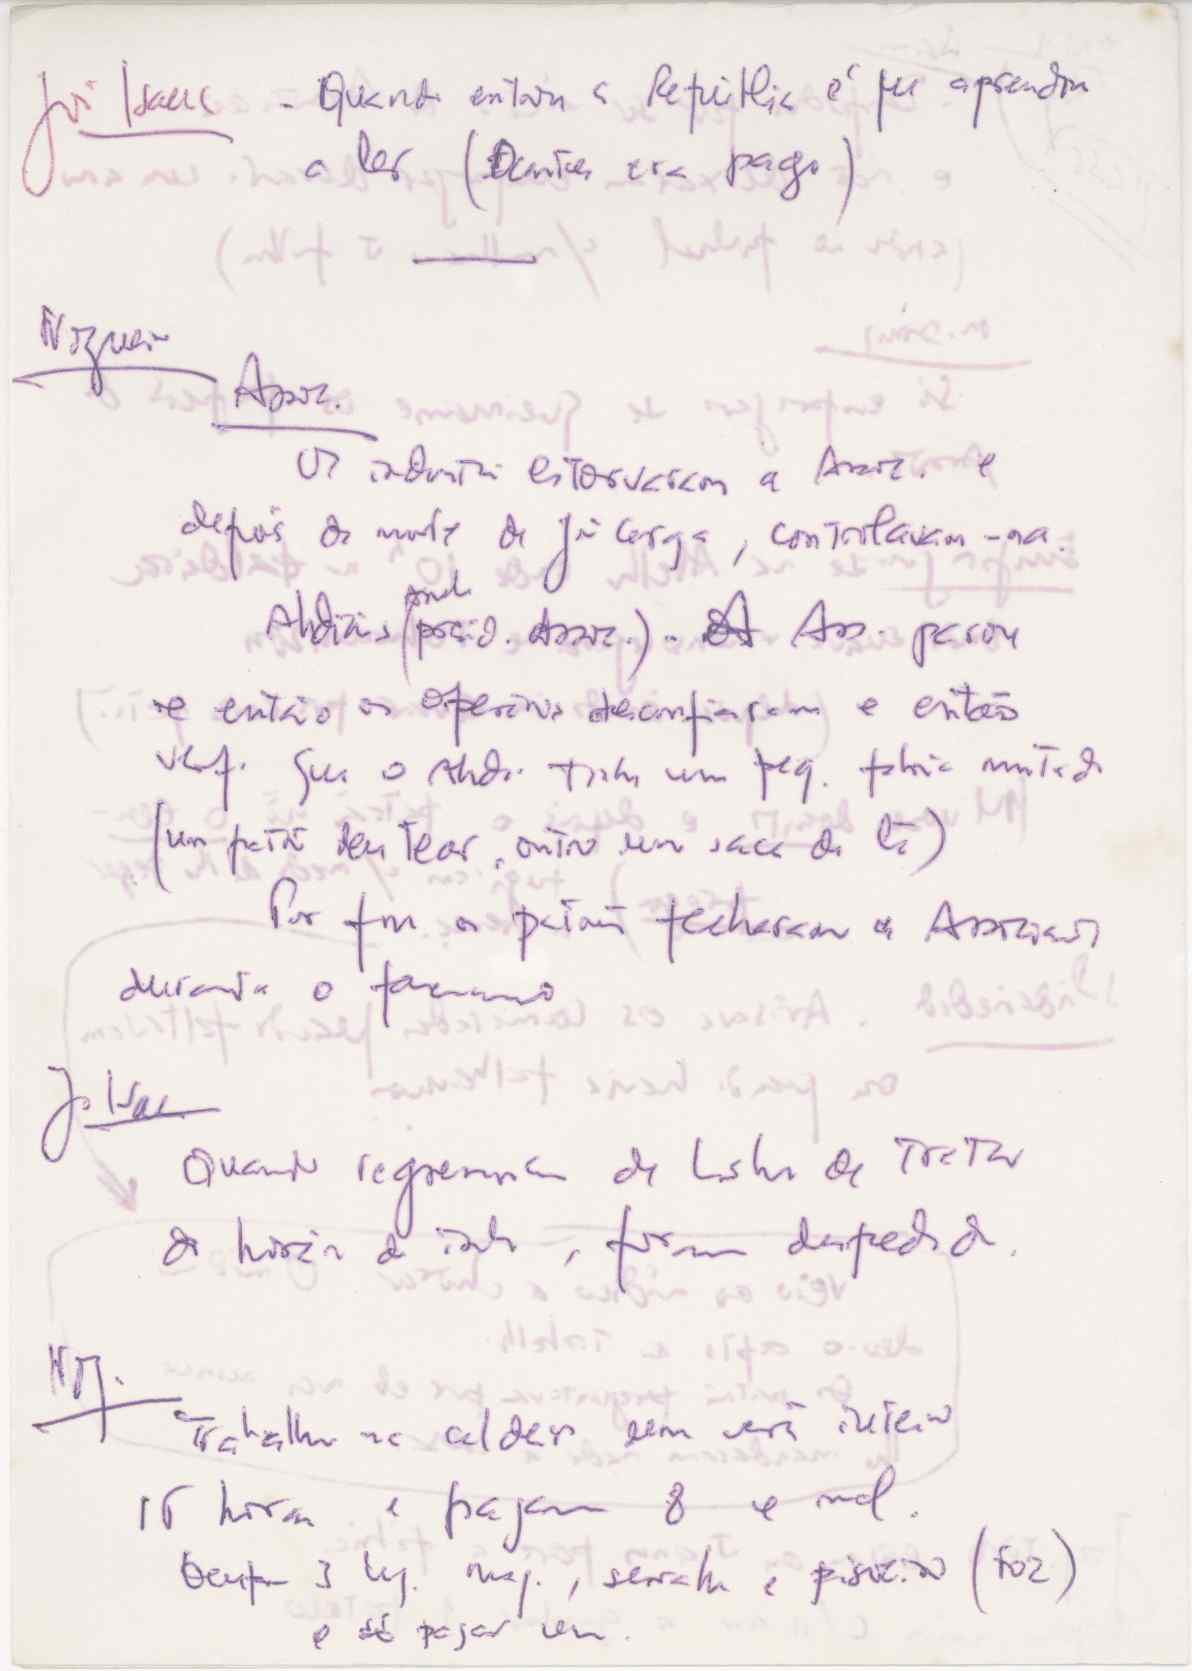 José Isaac - Quando entrou a República é que aprendeu
a ler (Dantes era pago)
Nogueira
Assoc.
Os industri estorvaram a Assoc. e
depois da morte de Jº Cerga, controlavam-na.
Abdias (presid. Assoc.) - A Ass. parou
e então os operários desconfiaram e então
verf. que o Abdi. tinha um peq. fabric
(um patrão deu tear, outro um saca de lã)
Por fim os patrões fecharam a Associação
durante o fascismo
Jº Isac
Quando regressaram de Lisboa de tratar
do horário de trab, foram despedidos.
Nog.
Trabalhou na caldeira um verão inteiro
16 horas e pagam 8 e mal.
3 lug. maq., serralh e pisoeiro (Foz)
e só pagar um.